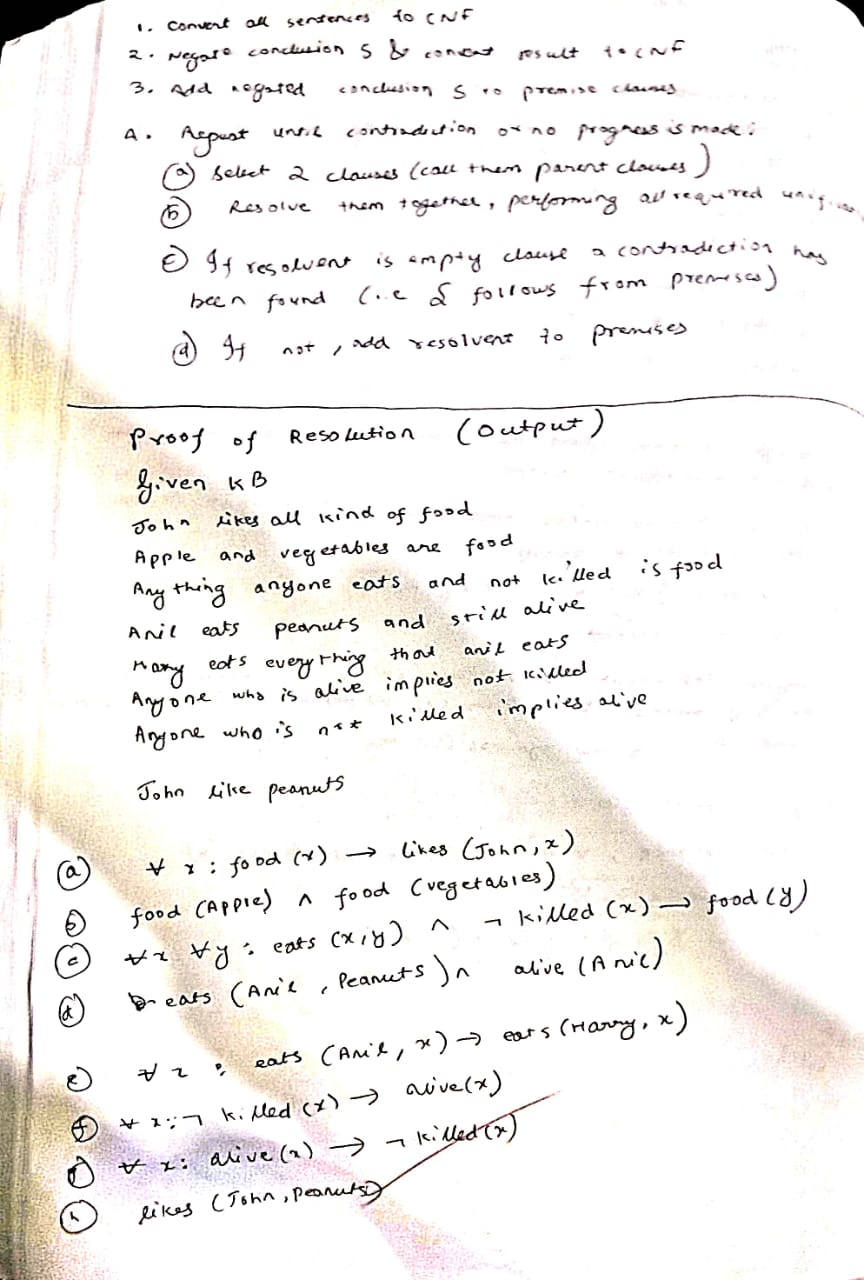 1. Convert all sentences to CNF
2. Negate conclusion S & convert result to CNF
3. Add negated conclusion S to premise clauses
4. Repeat until contradiction or no progress is made:
(a) Select 2 clauses (call them parent clauses)
(b) Resolve them together, performing all required
(c) If resolvent is empty clause a contradiction has
been found (i.e S follows from premises)
(d) If not, add resolvent to premises
Proof of Resolution (Output)
Given KB
John likes all kind of food
Apple and vegetables are food
Any thing anyone eats and not killed is food
Anil eats peanuts and still alive
Harry eats everything that anil eats
Anyone who is alive implies not killed
Anyone who is not killed implies alive
John like peanuts
(a) ∀ x : food (x) → likes (John, x)
(b) food (Apple) ∧ food (vegetables)
(c) ∀x ∀y : eats (x,y) ∧ ¬ killed (x) → food (y)
(d) eats (Anil, Peanuts) ∧ alive (Anil)
(e) ∀ x : eats (Anil, x) → eats (Harry, x)
(f) ∀ x : ¬ killed (x) → alive (x)
(g) ∀ x : alive (x) → ¬ killed (x)
(h) likes (John, Peanuts)